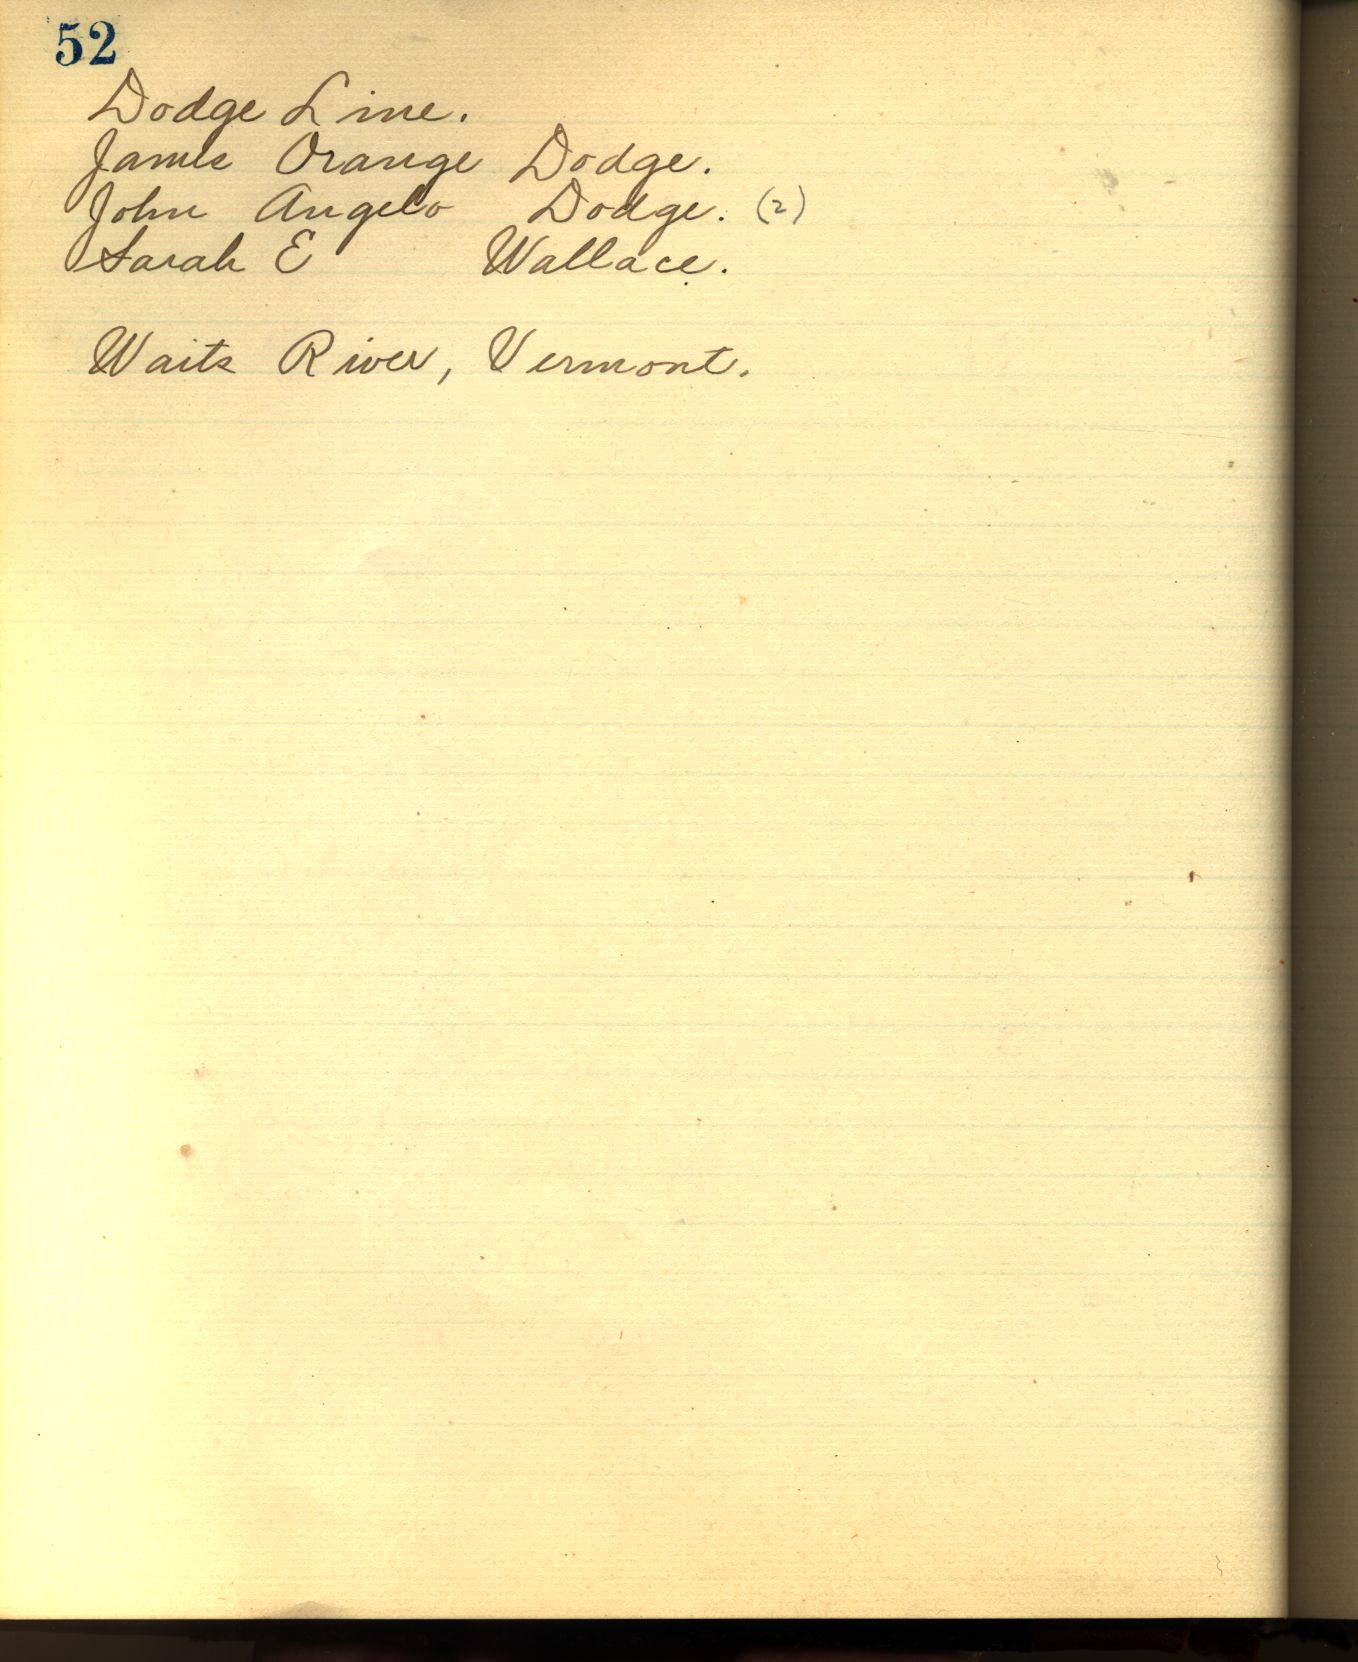 52
Dodge Line.
James Orange Dodge.
John Angelo Dodge. (2)
Sarah E Wallace.
Waits River, Vermont.